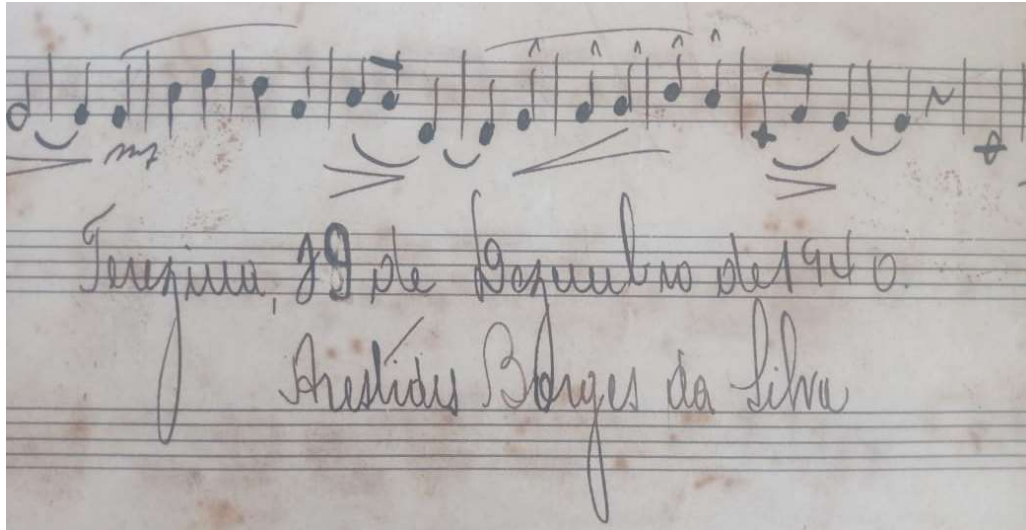 mf
Terezina, 29 de Dezembro de 1940.
Arestides Borges da Silva